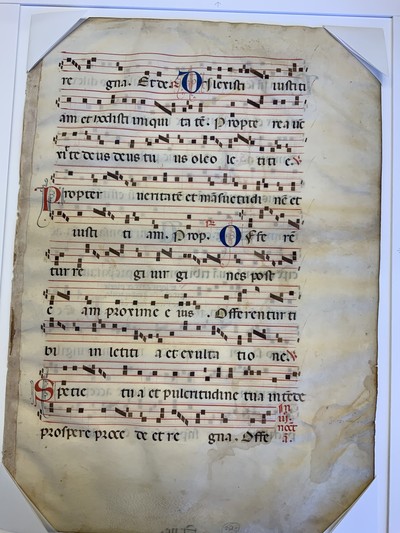 re gna. Et de. Dilexisti iustici
am et hodisti iniqui tatē. Propte rea ūc
xit te deus deus tu us oleo le titi e. ℣
Propter ueritatē et māsuetudi nē et
iusti ti am. Prop. Offe rē
tur re gi uir gi nes post
e am proxime e ius. Offerentur ti
bi in letiti a et exulta tio ne. ℣
Specie tu a et pulcritudine tua intēde
prospere proce de et re gna. Offe